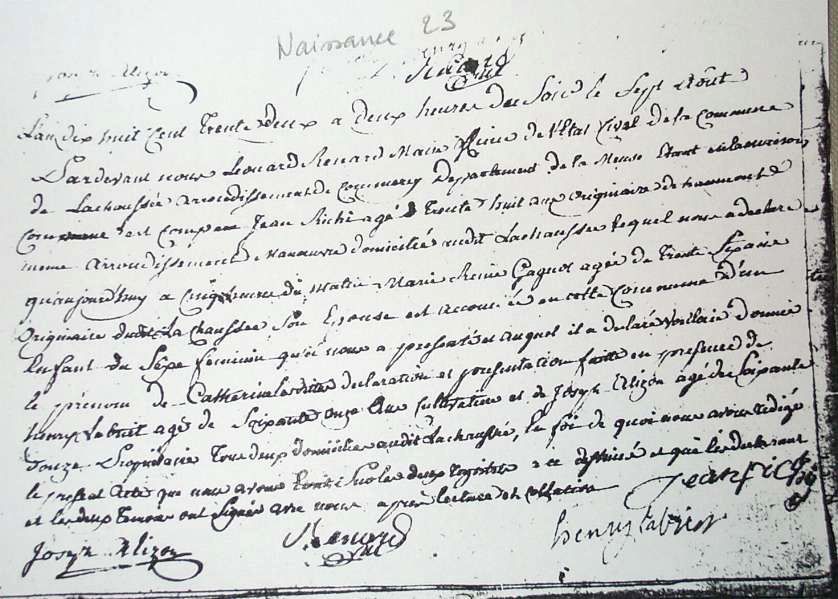 Naissance 23
Joseph Alizon
Lan dix huit Cent Trente deux a deux heures du Soir le Sept Août
Pardevant nous Leonard Renard Maire officier de l'Etat Civil de la Commune
de Lachaussée arrondissement de Commercy Departement de la Meuse Etant en la maison
Commune est comparu Jean Riché agé de Trente huit ans originaire de hannont
meme arrondissement Manœuvre domicilié audit Lachaussée lequel nous a déclaré
qu'aujourd'huy a Cinq heures du Matin Marie Reine Gagnot agée de Trente Six ans
Originaire dudit Lachaussée Son Epouse est accouchée en cette Commune d'un
Enfant du Sexe feminin qu'il nous a presenté et auquel il a declaré Vouloir donner
le prénom de Catherine lesdites déclaration et presentation faites en presence de
henry agé de Soixante Onze ans Cultivateur et de Joseph Alizon agé de Soixante
Douze Propriétaire Tous deux domiciliés audit Lachaussée, En foi de quoi nous avons redigé
le present acte que nous avons Porté Sur les deux registres a ce destinés et que les declarant
et les deux Temoins ont Signés avec nous apres lecture et collation
Jean
Joseph Alizon Renard henry